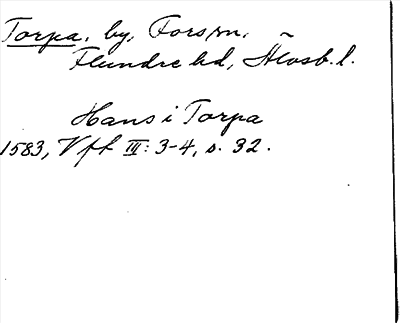 Torpa, by, Fors sn,
Flundre hd, Älvsb. l.
Hans i Torpa
1583, Vfl III: 3-4, s. 32.